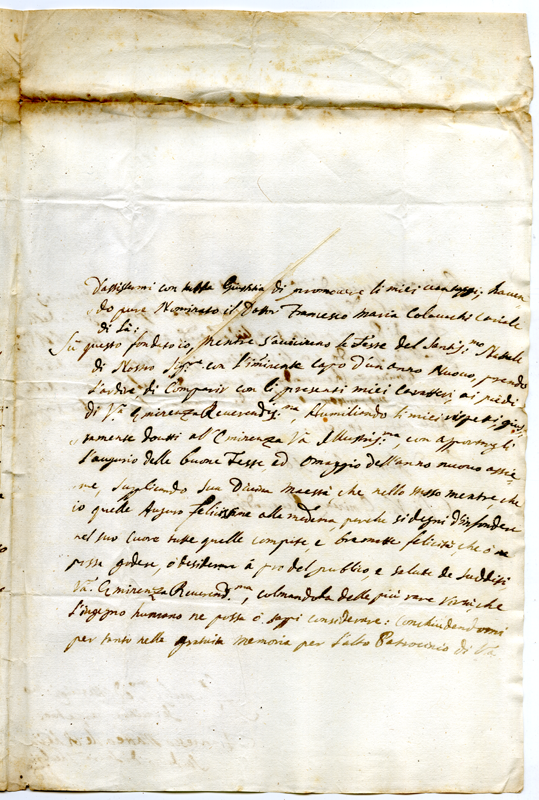 d'assistermi con tutta Giustizia di promovere li miei vantaggi, haven
do pure Nominato il Dottr Francesco Maria
di Là:
Sù questo fondo io, mentre s'avvicinano le Feste del Santis:mo Natale
di Nostro Sigre con l'iminente Capo d'un'anno Nuovo, prendo
l'ardire di Comparir con li presenti miei Caratteri ai piedi
di Va Eminenza Reverendis:ma, Humiliando li miei rispetti gius
tamente dovuti all'Eminenza Va Illustris:ma con apportargli
l'augurio delle buone Feste ed omaggio dell'anno nuovo assie
me, suplicando Sua Divina Maestà che nello stesso mentre che
io quelle Auguro felicissime alle medema perche si degni d'infondere
nel suo Cuore tutte quelle compite, e bramate felicità che ò ne
possa godere, ò desiderare à prò del publico, e salute de sudditi
Va Eminenza Reverendis:ma, colmandola delle più rare virtù che
l'ingegno humano ne possa ò sappi considerare: Conchiudendomi
per tanto nella gratuita memoria per l'alto Patrocinio di Va